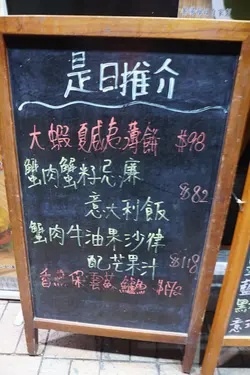 是日推介
大蝦夏威夷薄餅 $98
蟹肉蟹籽忌廉
意大利飯 $82
蟹肉牛油果沙律
配芒果汁 $118